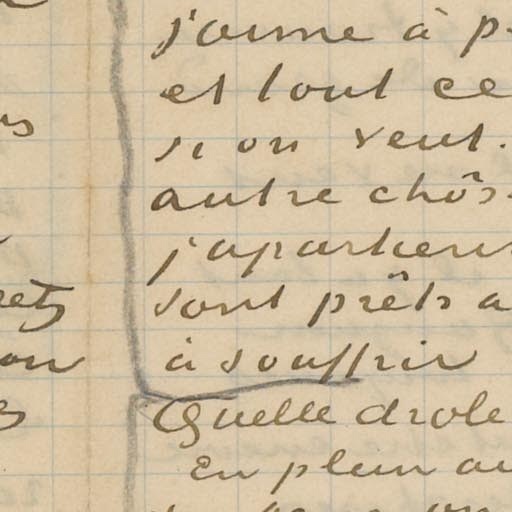 j'aime à p
et tout ce
si on veut.
autre chôs
j'apartien
sont prêts a
à souffrir
Quelle drole
En plein au
on